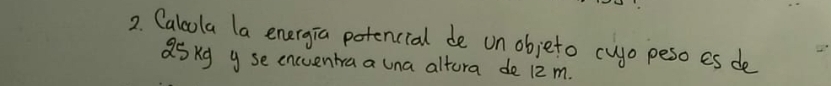 2. Calcula la energía potencial de un objeto cuyo peso es de
25 kg y se encuentra a una altura de 12 m.